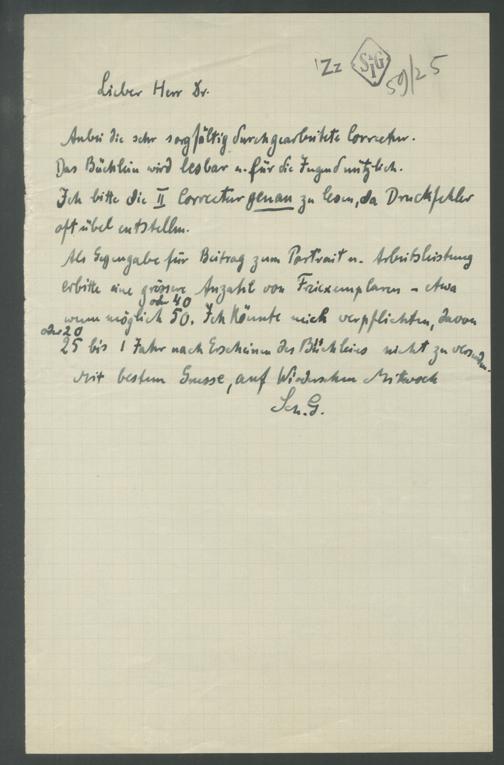 Zz SfG 59/25
Lieber Herr Dr.
Anbei die sehr sorgfältig durchgearbeitete Correctur.
Das Büchlein wird lesbar u. für die Jugend nützlich.
Ich bitte die II Correctur genau zu lesen, da Druckfehler
oft übel entstellen.
Als Gegengabe für Beitrag zum Portrait u. Arbeitsleistung
erbitte eine grössere Anzahl von Freiexemplaren – etwa
oder 40
wenn möglich 50. Ich könnte mich verpflichten, davon
oder 20
25 bis 1 Jahr nach Erscheinen des Büchleins nicht zu versenden.
Mit bestem Grusse, auf Wiedersehen Mittwoch
Sch. G.